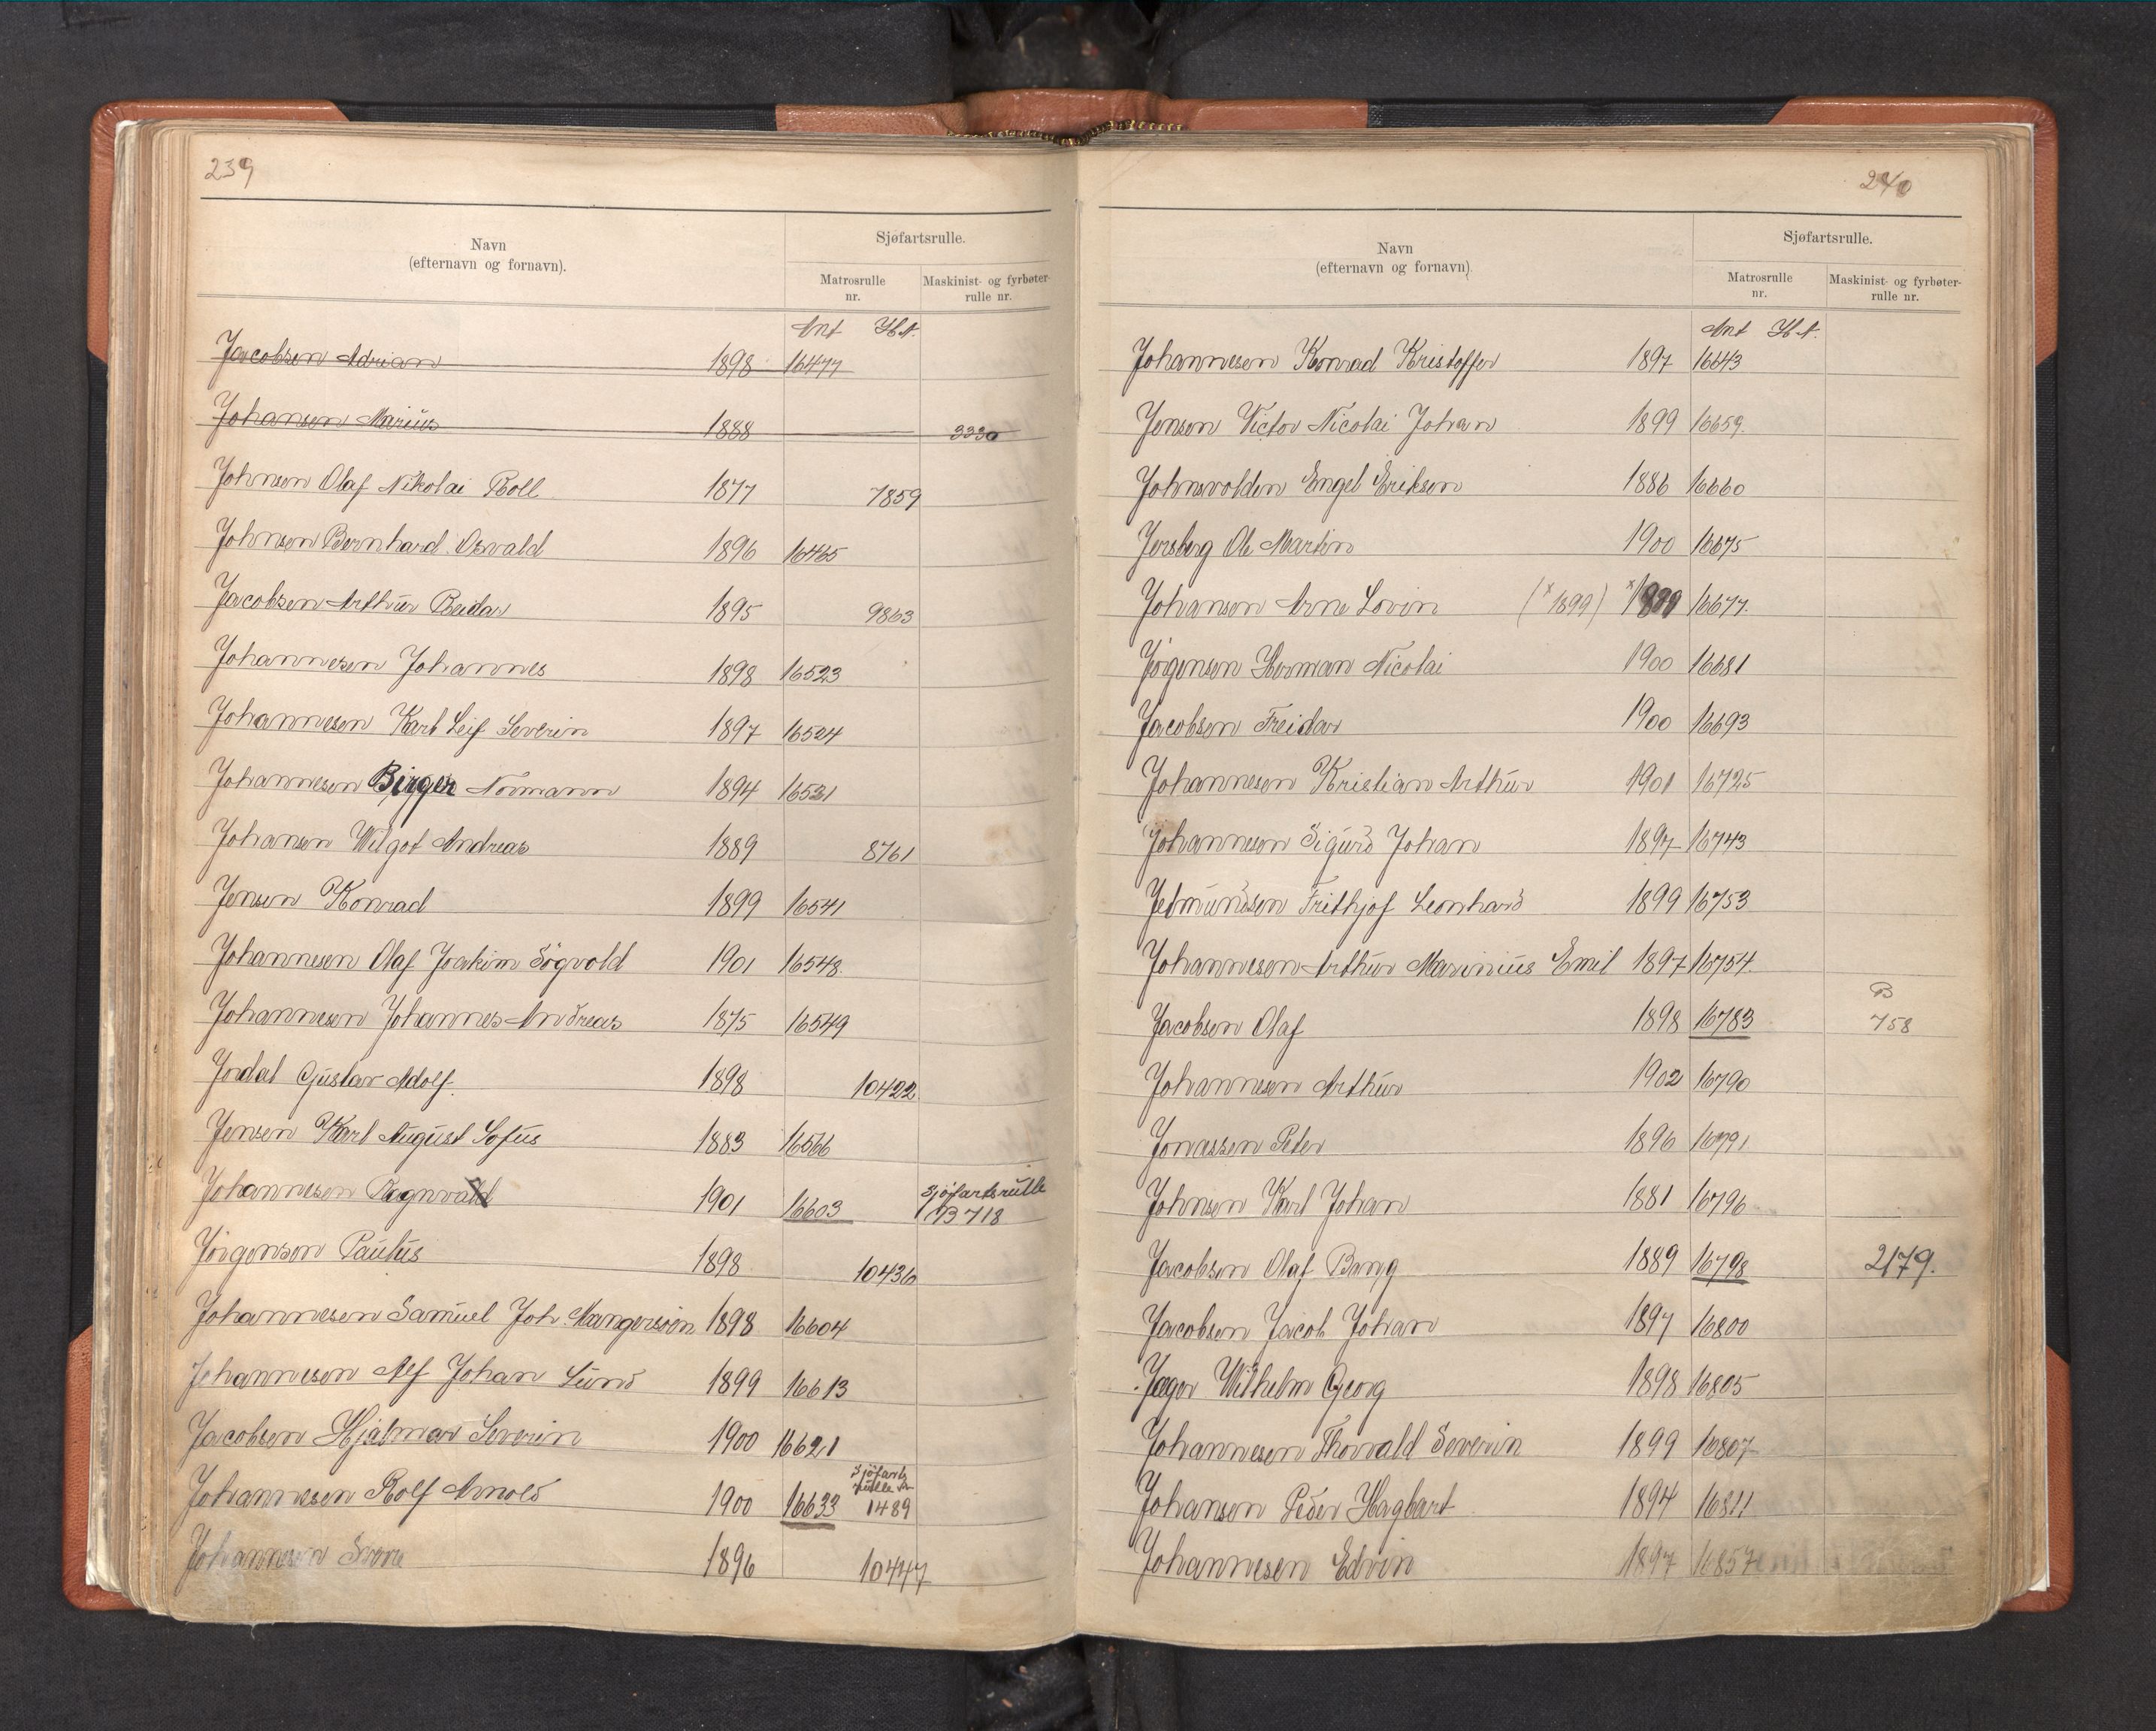 239
Navn
(efternavn og fornavn).
Sjøfartsrulle.
Matrosrulle
nr.
Maskinist- og fyrbøter-
rulle nr.
Ant H.A.
Jacobsen Adrian 1898 16477
Johansen Marius 1888 3330
Johnsen Olaf Nikolai Roll 1877 7859
Johnsen Bernhard Osvald 1896 16465
Jacobsen Arthur Reidar 1895 9863
Johannesen Johannes 1898 16523
Johannesen Karl Leif Severin 1897 16524
Johannesen Birger Normann 1894 16531
Johansen Wilgot Andreas 1889 8761
Jensen Konrad 1899 16541
Johannesen Olaf Joakim Sigvald 1901 16548
Johannesen Johannes Andreas 1875 16549
Jordal Gustav Adolf. 1898 10422
Jensen Karl August Sofus 1883 16566
Johannesen Ragnvald 1901 16603 Sjöfartsrulle
B 718
Jörgensen Paulus 1898 10436
Johannesen Samuel Joh. Mangersøen 1898 16604
Johannesen Alf Johan Lund 1899 16613
Jacobsen Hjalmar Severin 1900 16621
Johannesen Rolf Arnold 1900 16633 Sjöfarts
rulle
1489
Johannesen Sverre 1896 10447
240
Navn
(efternavn og fornavn).
Sjøfartsrulle.
Matrosrulle
nr.
Maskinist- og fyrbøter-
rulle nr.
Ant H.A.
Johannesen Konrad Kristoffer 1897 16643
Jensen Victor Nicolai Johan 1899 16659.
Johnsvolden Engel Eriksen 1886 16660
Jersberg Ole Martin 1900 16675
Johansen Arne Lovin (x 1899) x 1899 16677.
Jörgensen Herman Nicolai 1900 16681
Jacobsen Freidar 1900 16693
Johannesen Kristian Arthur 1901 16725
Johannesen Sigurd Johan 1897 16743
Jetmundsen Frithjof Leonhard 1899 16753
Johannesen Arthur Marinius Emil 1897 16754.
Jacobsen Olaf 1898 16783 B
758
Johannesen Arthur 1902 16790
Jonassen Peter 1896 16791
Johnsen Karl Johan 1881 16796
Jacobsen Olaf Bang 1889 16798 2179.
Jacobsen Jacob Johan 1897 16800
Jæger Wilhelm Georg 1898 16805
Johannesen Thorvald Severin 1899 16807
Johansen Peder Hagbart 1894 16811
Johannesen Edvin 1897 16857